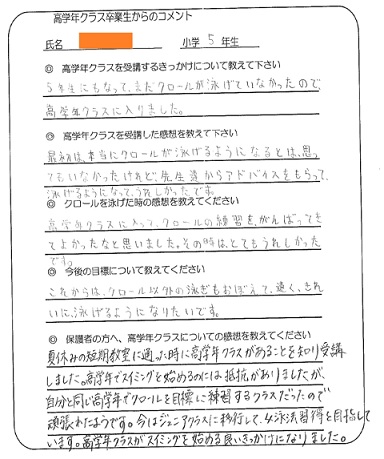 高学年クラス卒業生からのコメント
氏名 小学 5 年生
◎ 高学年クラスを受講するきっかけについて教えて下さい
5年生にもなって、まだクロールが泳げていなかったので、
高学年クラスに入りました。
◎ 高学年クラスを受講した感想を教えて下さい
最初は、本当にクロールが泳げるようになるとは、思っ
てもいなかったけれど、先生達からアドバイスをもらって、
泳げるようになって、うれしかったです。
◎ クロールを泳げた時の感想を教えてください
高学年クラスに入って、クロールの練習を、がんばってき
てよかったなと思いました。その時は、とてもうれしかった
です。
◎ 今後の目標について教えてください
これからは、クロール以外の泳ぎもおぼえて、速く、きれ
いに、泳げるようになりたいです。
◎ 保護者の方へ、高学年クラスについての感想を教えてください
夏休みの短期教室に通った時に高学年クラスがあることを知り受講
しました。高学年でスイミングを始めるのには抵抗がありましたが、
自分と同じ高学年でクロールを目標に練習するクラスだったので
頑張れたようです。今はジュニアクラスに移行して、4泳法習得を目指して
います。高学年クラスがスイミングを始める良いきっかけになりました。